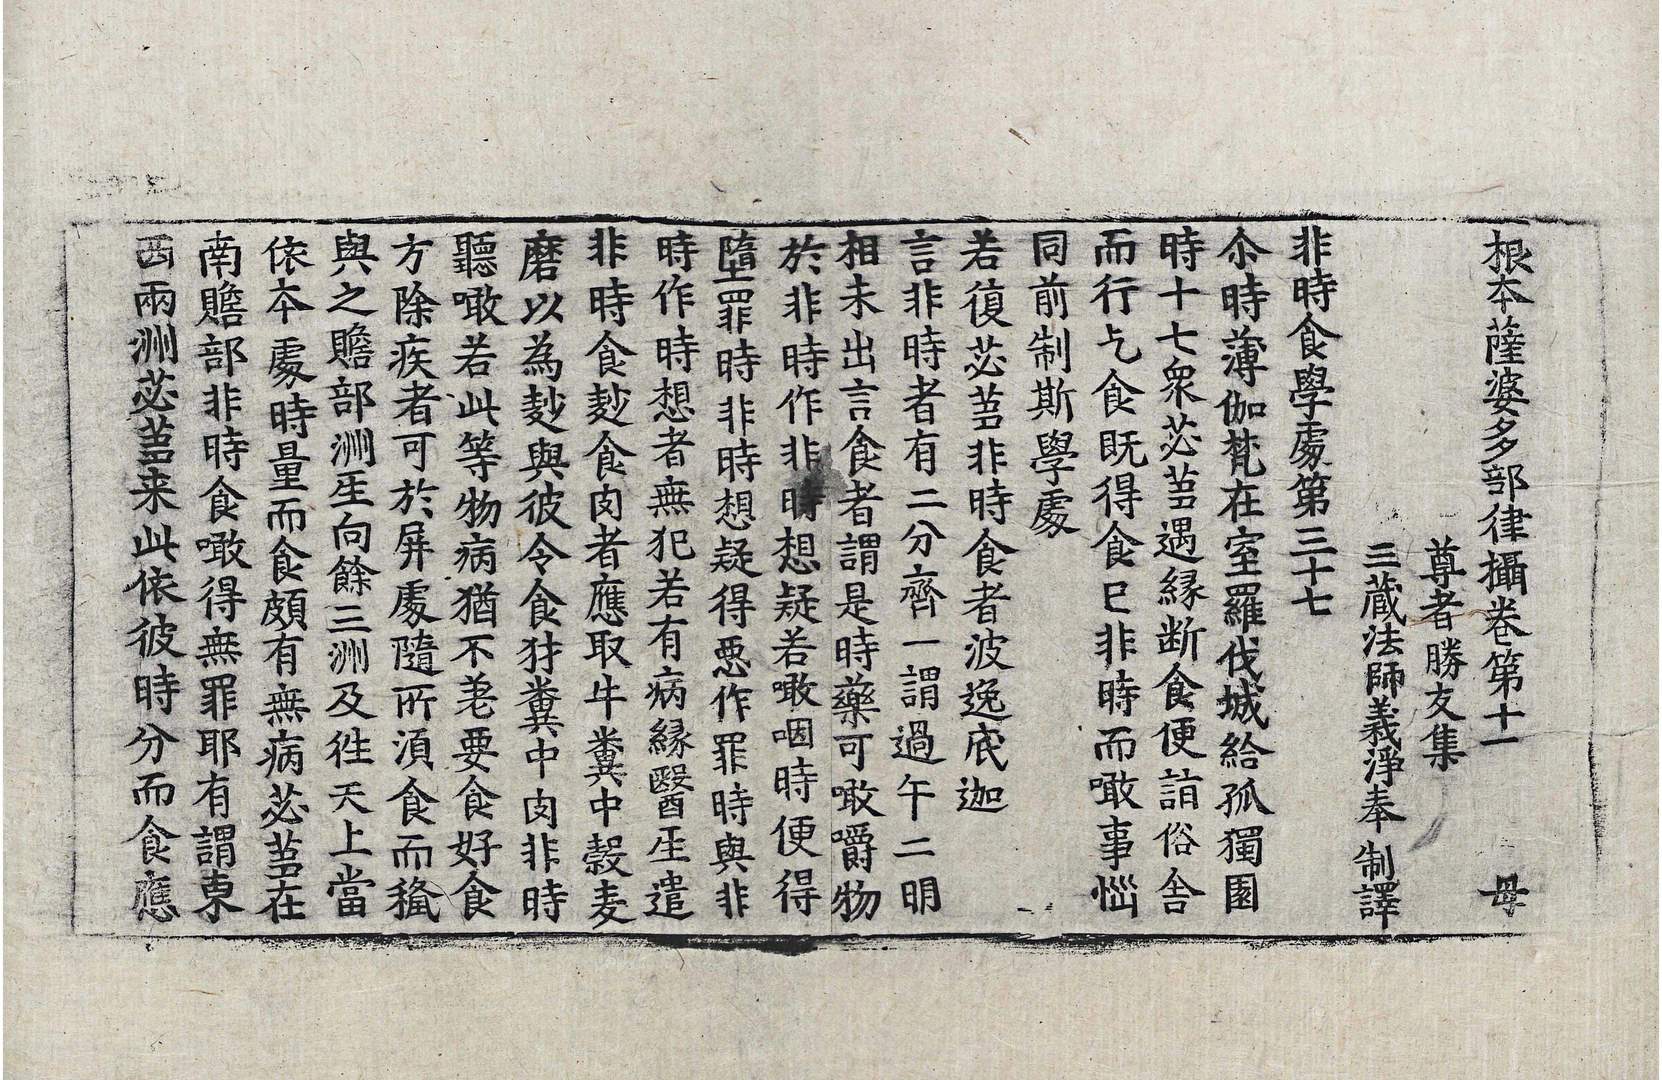 根本薩婆多部律攝卷第十一　母
尊者勝友集
三蔵法師義淨奉　制譯
非時食學處第三十七
尒時薄伽梵在室羅伐城給孤獨園
時十七衆苾芻遇縁断食便詣俗舎
而行乞食既得食已非時而噉事惱
同前制斯學處
若復苾芻非時食者波逸底迦
言非時者有二分齊一謂過午二明
相未出言食者謂是時藥可噉嚼物
於非時作非時想疑若噉咽時便得
墮罪時非時想疑得悪作罪時與非
時作時想者無犯若有病縁醫𤯔遣
非時食麨食肉者應取牛糞中穀麦
磨以為麨與彼令食犲糞中肉非時
聽噉若此等物病猶不差要食好食
方除疾者可於屏處隨所湏食而稱
與之贍部洲𤯔向餘三洲及徃天上當
依本處時量而食頗有無病苾芻在
南贍部非時食噉得無罪耶有謂東
西兩洲苾芻来此依彼時分而食應